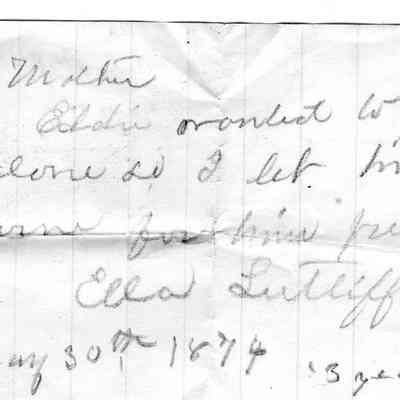 Mother
Eddie wanted to
alone so I let him
for him
Ella Sutliff
ay 30th 1874 3 yea